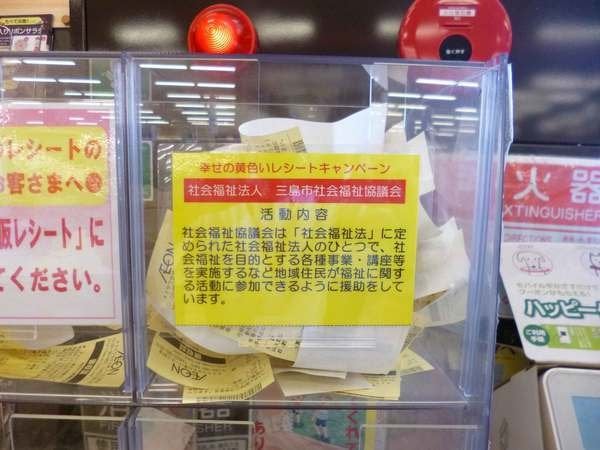 幸せの黄色いレシートキャンペーン
社会福祉法人 三島市社会福祉協議会
活動内容
社会福祉協議会は「社会福祉法」に定
められた社会福祉法人のひとつで、社
会福祉を目的とする各種事業・講座等
を実施するなど地域住民が福祉に関す
る活動に参加できるように援助をして
います。
レシートの
客さまへ
レシート」に
てください。
ÆON
ÆON
火器
EXTINGUISHER
ハッピー
ご利用
手順
強く押す